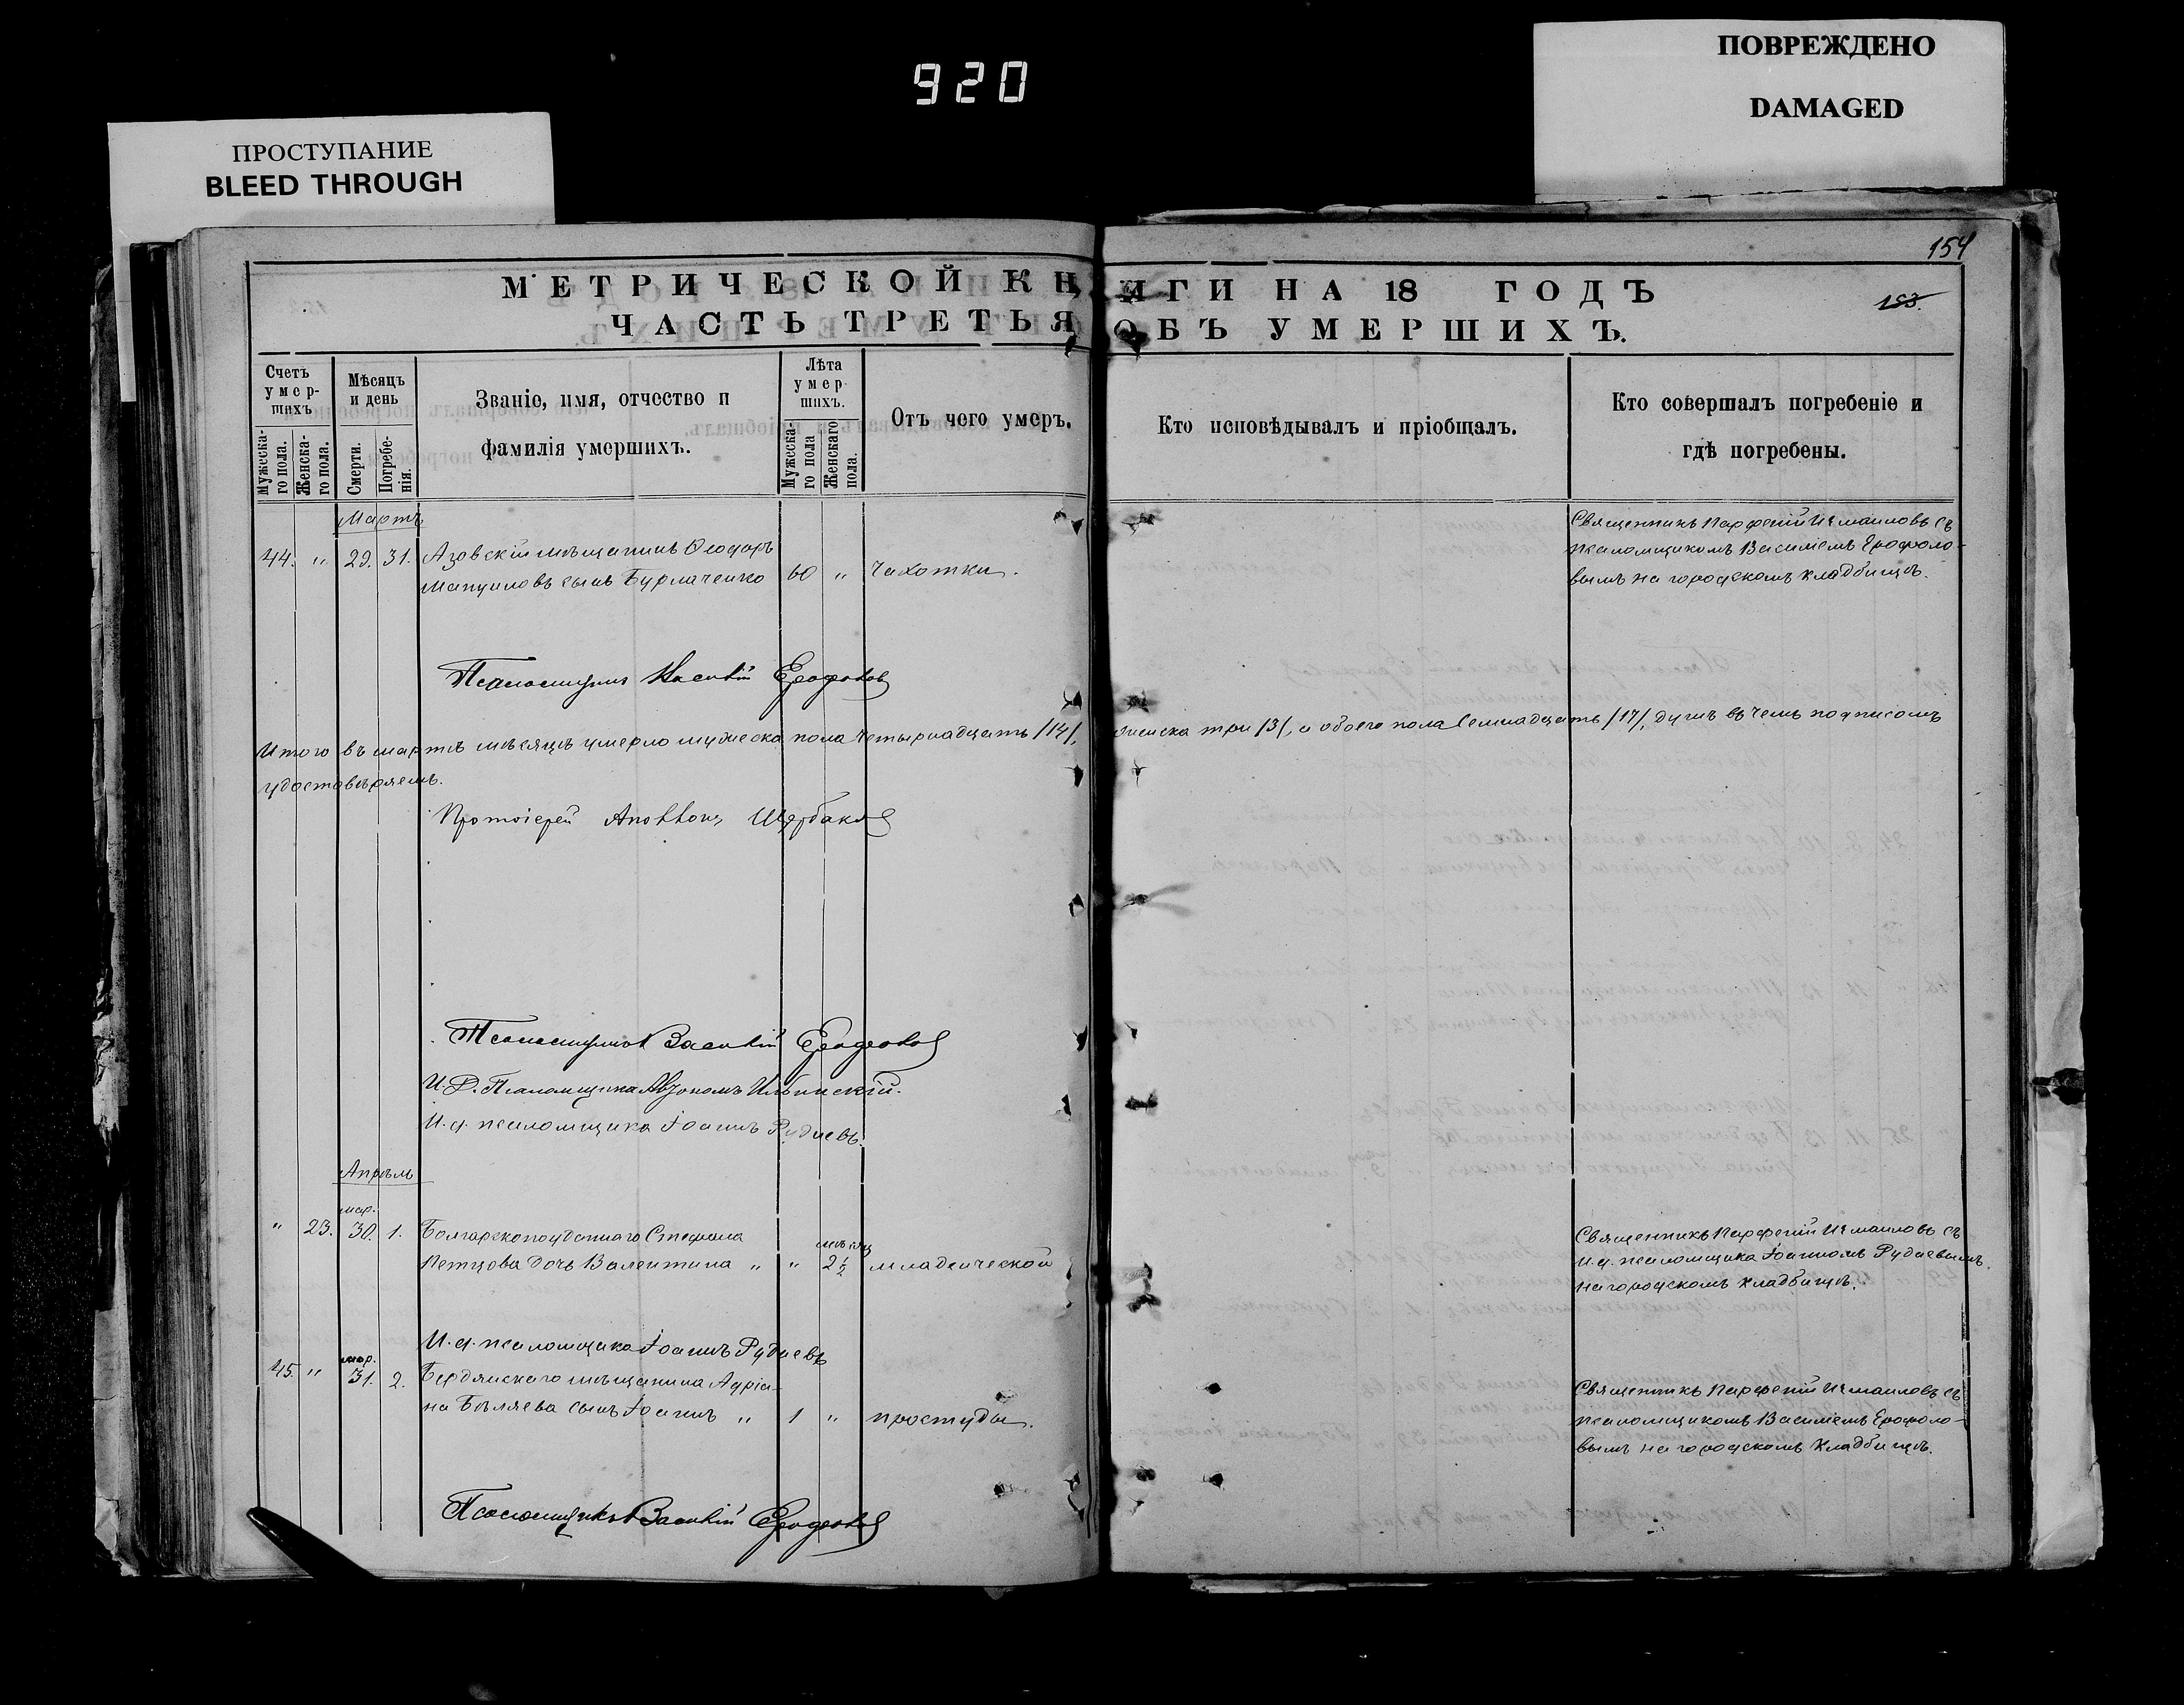 920
ПОВРЕЖДЕНО
DAMAGED
ПРОСТУПАНИЕ
BLEED THROUGH
154
МЕТРИЧЕСКОЙ КНИГИ НА 18 ГОДЪ
153.
ЧАСТЬ ТРЕТЬЯ ОБЪ УМЕРШИХЪ.
Счетъ умер-шихъ
Мужеска-го пола.
Женска-го пола.
Мѣсяцъ и день
Смерти.
Погребе-нія.
Званіе, имя, отчество и
фамилія умершихъ.
Лѣта умер-шихъ.
Мужеска-го пола
Женскаго пола.
Отъ чего умеръ.
Кто исповѣдывалъ и пріобщалъ.
Кто совершалъ погребеніе и
гдѣ погребены.
Мартъ
44. " 29. 31. Азовскій мѣщанинъ Ѳеодоръ
Мануиловъ сынъ Бурлаченко 60 " чахотки.
Священникъ Парфеній Измаиловъ съ
псаломщикомъ Василіемъ Ерофоло-
вымъ на городскомъ кладбищѣ.
Псаломщикъ Василій
Итого въ мартѣ мѣсяцѣ умерло мужеска пола четырнадцать /14/, женска три /3/, а обоего пола семнадцать /17/, душъ въ чемъ подписомъ
удостовѣряемъ.
Протоіерей Щербаковъ
Псаломщикъ Василій
И. Д. Псаломщика Автономъ Ильинскій.
И. д. псаломщика Іоаннъ Рудневъ.
Апрѣль
" 23. мар. 30. 1. Болгарскоподданнаго Стефана
Петцова дочь Валентина " " мѣсяц 2½ младенческой
Священникъ Парфеній Измаиловъ съ
и. д. псаломщика Іоанномъ Рудневымъ
на городскомъ кладбищѣ.
И. д. псаломщика Іоаннъ Рудневъ
45. " мар. 31. 2. Бердянскаго мѣщанина Адріа-
на Бѣляева сынъ Іоаннъ " 1 " простуды.
Священникъ Парфеній Измаиловъ съ
псаломщикомъ Василіемъ Ерофоло-
вымъ на городскомъ кладбищѣ.
Псаломщикъ Василій